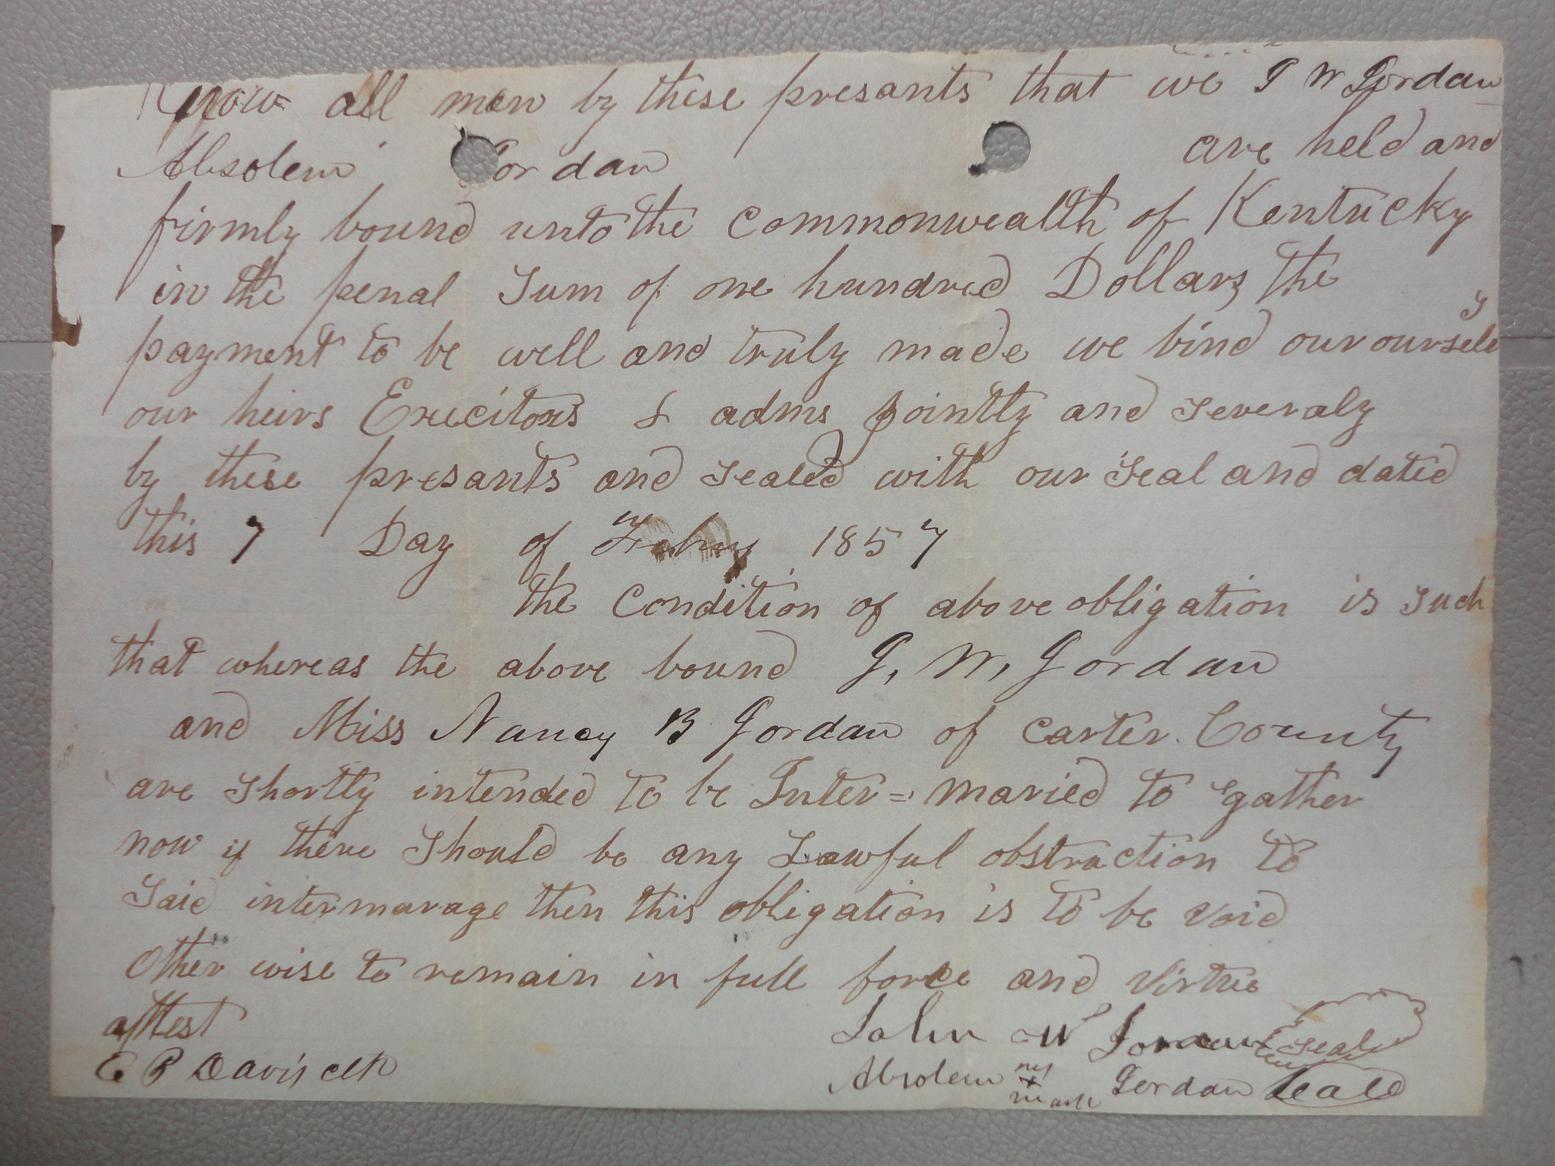 Know all men by these presants that we J W Jordan
Absolem Jordan are held and
firmly bound unto the Commonwealth of Kentucky
in the penal Sum of one hundred Dollars, the
payment to be well and truly made we bind our ourselv
our heirs Execitors & adms jointly and severaly
by these presants and sealed with our Seal and dated
this 7 Day of Feby 1857
the Condition of above obligation is such
that whereas the above bound J. W. Jordan
and Miss Nancy B Jordan of Carter County
are shortly intended to be Inter = maried to gather
now if there should be any Lawful obstraction to
Said intermarage then this obligation is to be void
Other wise to remain in full force and virtue
attest
John W Jordan Seal
E P Davis clk
Absolem his x mark Jordan Seald